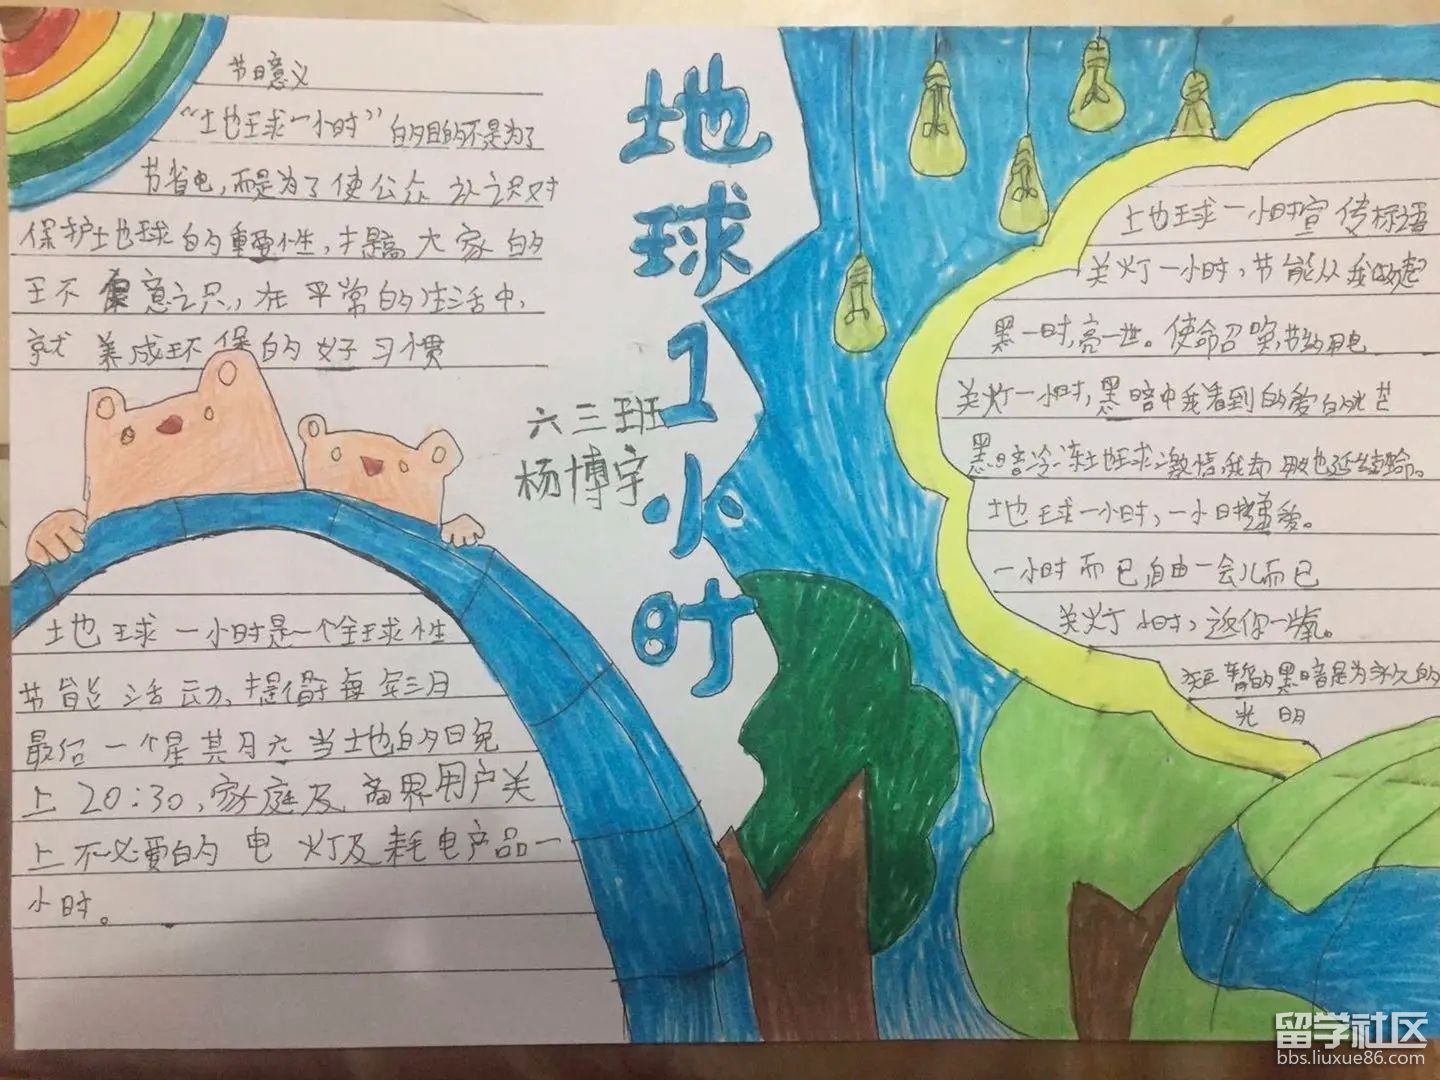 节日意义
“地球一小时”的目的不是为了
节省电,而是为了使公众认识对
保护地球的重要性,提高大家的
环保意识,在平常的生活中,
就养成环保的好习惯
地球1小时
六三班
杨博宇
地球一小时是一个全球性
节能活动,提倡于每年三月
最后一个星其月六当地的日免
上20:30,家庭及商界用户关
上不必要的电灯及耗电产品一
小时。
地球一小时宣传标语
关灯一小时,节能从我做起
黑一时,亮一世。使命召唤,节约用电
关灯一小时,黑暗中我看到的爱的光芒
黑暗冷冻地球激情我却
地球一小时,一小时
一小时而已,自由一会儿而已
关灯小时,还你一氧。
短暂的黑暗是为永久的
光明
留学社区
bbs.liuxue86.com